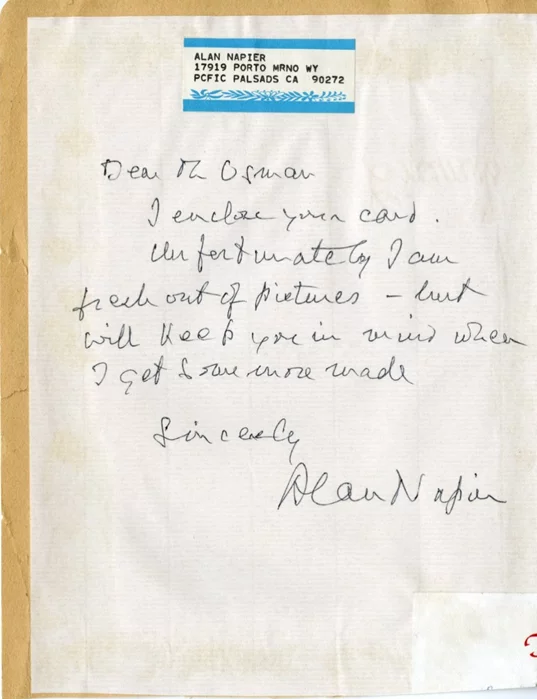 ALAN NAPIER
17919 PORTO MRNO WY
PCFIC PALSADS CA 90272
Dear Mr Osman
I enclose your card.
Unfortunately I am
fresh out of pictures – but
will keep you in mind when
I get some more made
Sincerely
Alan Napier